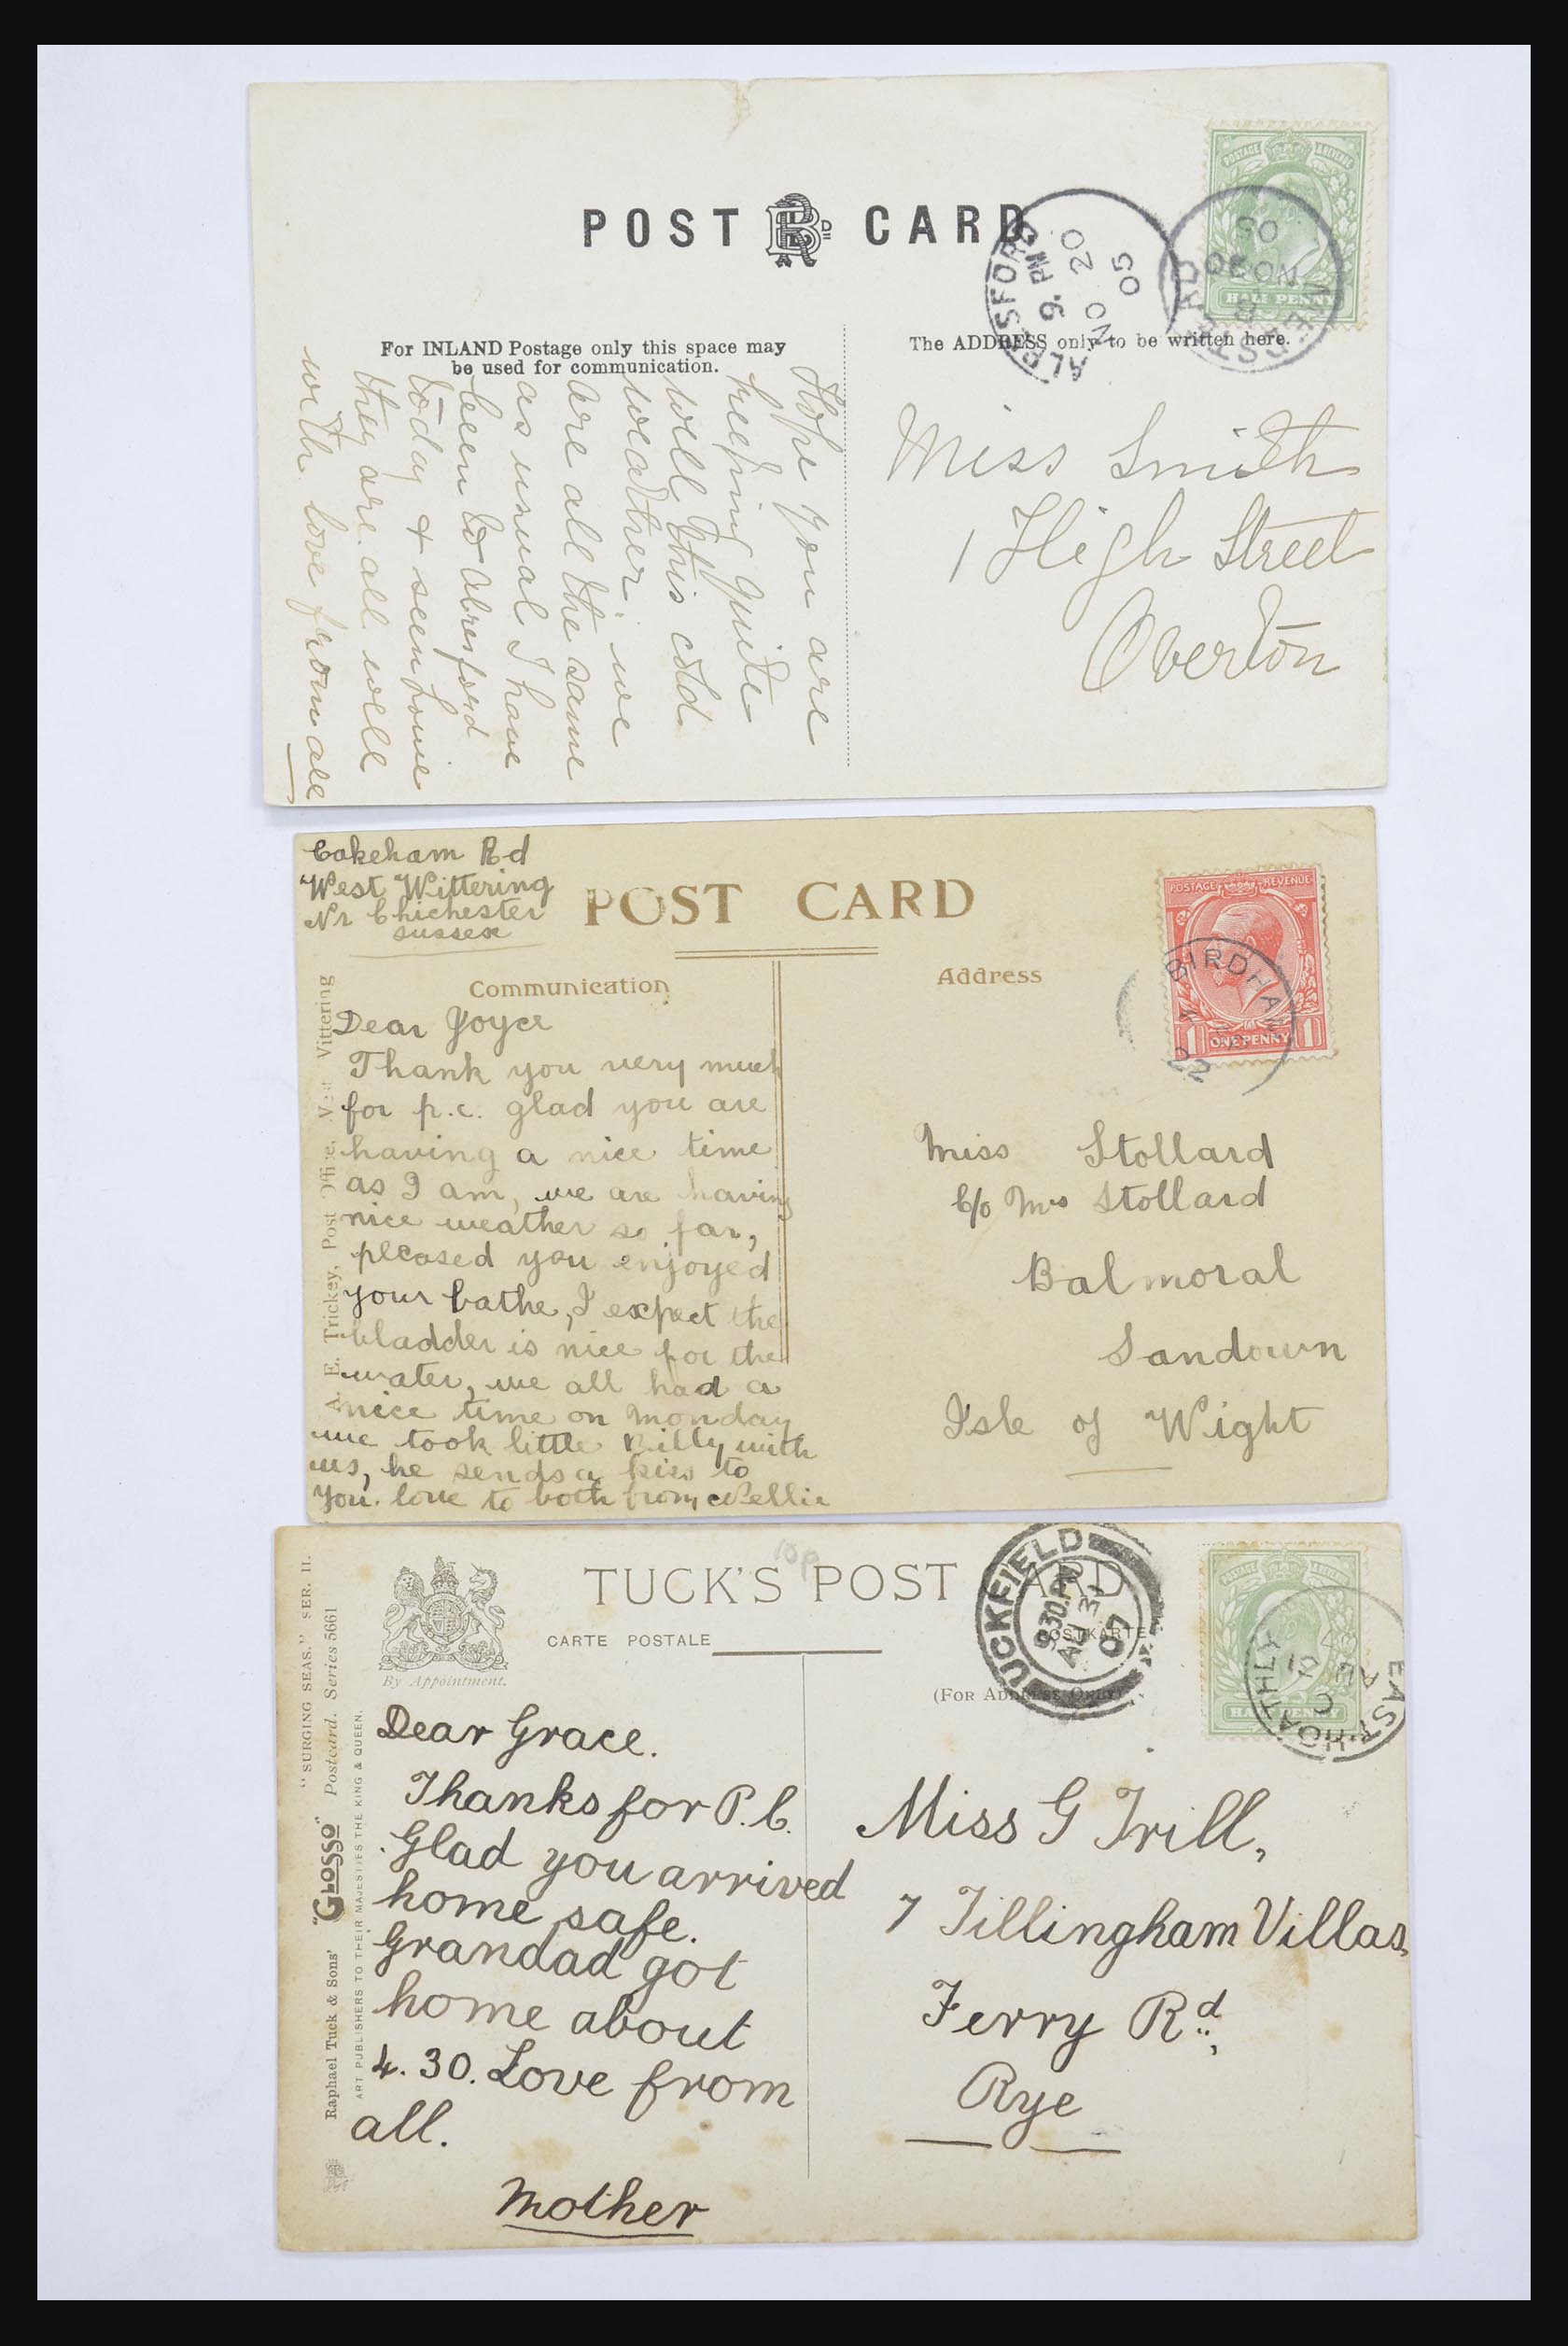 POST CARD
For INLAND Postage only this space may
be used for communication.
The ADDRESS only to be written here.
ALRESFORD
9. PM
NO 20
05
NO 20
05
HALF PENNY
POSTAGE REVENUE
Hope you are
keeping quite
well this cold
weather. we
are all the same
as usual I have
been to Alresford
today & seen Louie
they are all well
with love from all
Miss Smith
1 High Street
Overton
Cakeham Rd
West Wittering
Nr Chichester
Sussex
POST CARD
Communication
Address
POSTAGE REVENUE
1 ONE PENNY 1
BIRDHAM
22
A. E. Trickey, Post Office, West Wittering
Dear Joyce
Thank you very much
for p.c. glad you are
having a nice time
as I am, we are having
nice weather so far,
pleased you enjoyed
your bathe, I expect the
bladder is nice for the
water, we all had a
nice time on Monday
we took little Billy with
us, he sends a kiss to
you. love to both from Nellie
Miss Stollard
c/o Mrs Stollard
Balmoral
Sandown
Isle of Wight
10p
TUCK'S POST CARD
CARTE POSTALE
POSTKARTE
(FOR ADDRESS ONLY)
By Appointment.
UCKFIELD
9.30 PM
AU 31
07
EAST-HOATHLY
HALF PENNY
"SURGING SEAS." SER. II.
Postcard. Series 5661
Raphael Tuck & Sons' "GLOSSO"
ART PUBLISHERS TO THEIR MAJESTIES THE KING & QUEEN.
Dear Grace.
Thanks for P.C.
Glad you arrived
home safe.
Grandad got
home about
4.30. Love from
all.
Mother
Miss G Trill,
7 Tillingham Villas,
Ferry Rd,
Rye